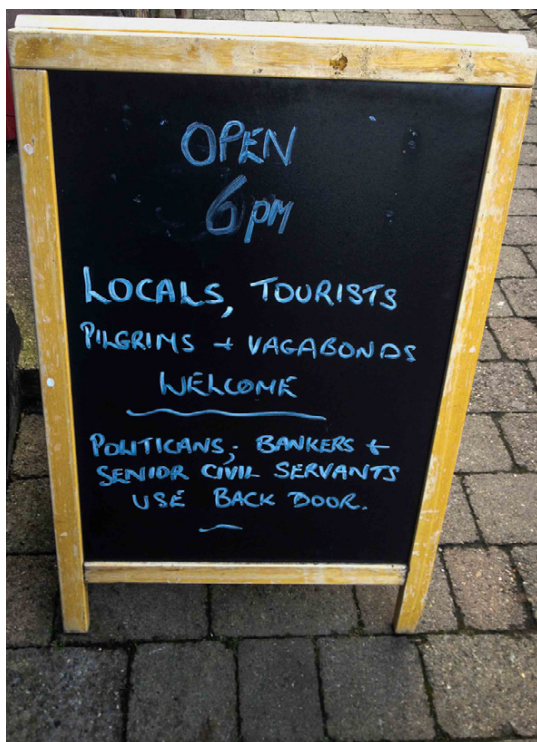 OPEN
6PM
LOCALS, TOURISTS
PILGRIMS + VAGABONDS
WELCOME
POLITICANS, BANKERS +
SENIOR CIVIL SERVANTS
USE BACK DOOR.